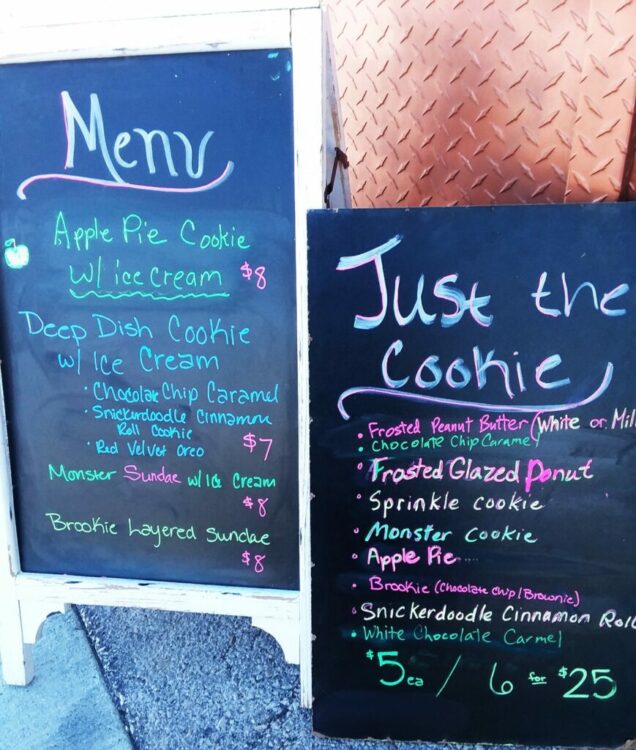 Menu
Apple Pie Cookie
w/ ice cream $8
Deep Dish Cookie
w/ Ice Cream
• Chocolate Chip Caramel
• Snickerdoodle Cinnamon
Roll Cookie
• Red Velvet Oreo
$7
Monster Sundae w/ Ice Cream
$8
Brookie Layered Sundae
$8
Just the
Cookie
• Frosted Peanut Butter (White or Mil
• Chocolate Chip Caramel
• Frosted Glazed Donut
• Sprinkle cookie
• Monster Cookie
• Apple Pie
• Brookie (Chocolate Chip/Brownie)
• Snickerdoodle Cinnamon Roll
• White Chocolate Carmel
$5 ea / 6 for $25